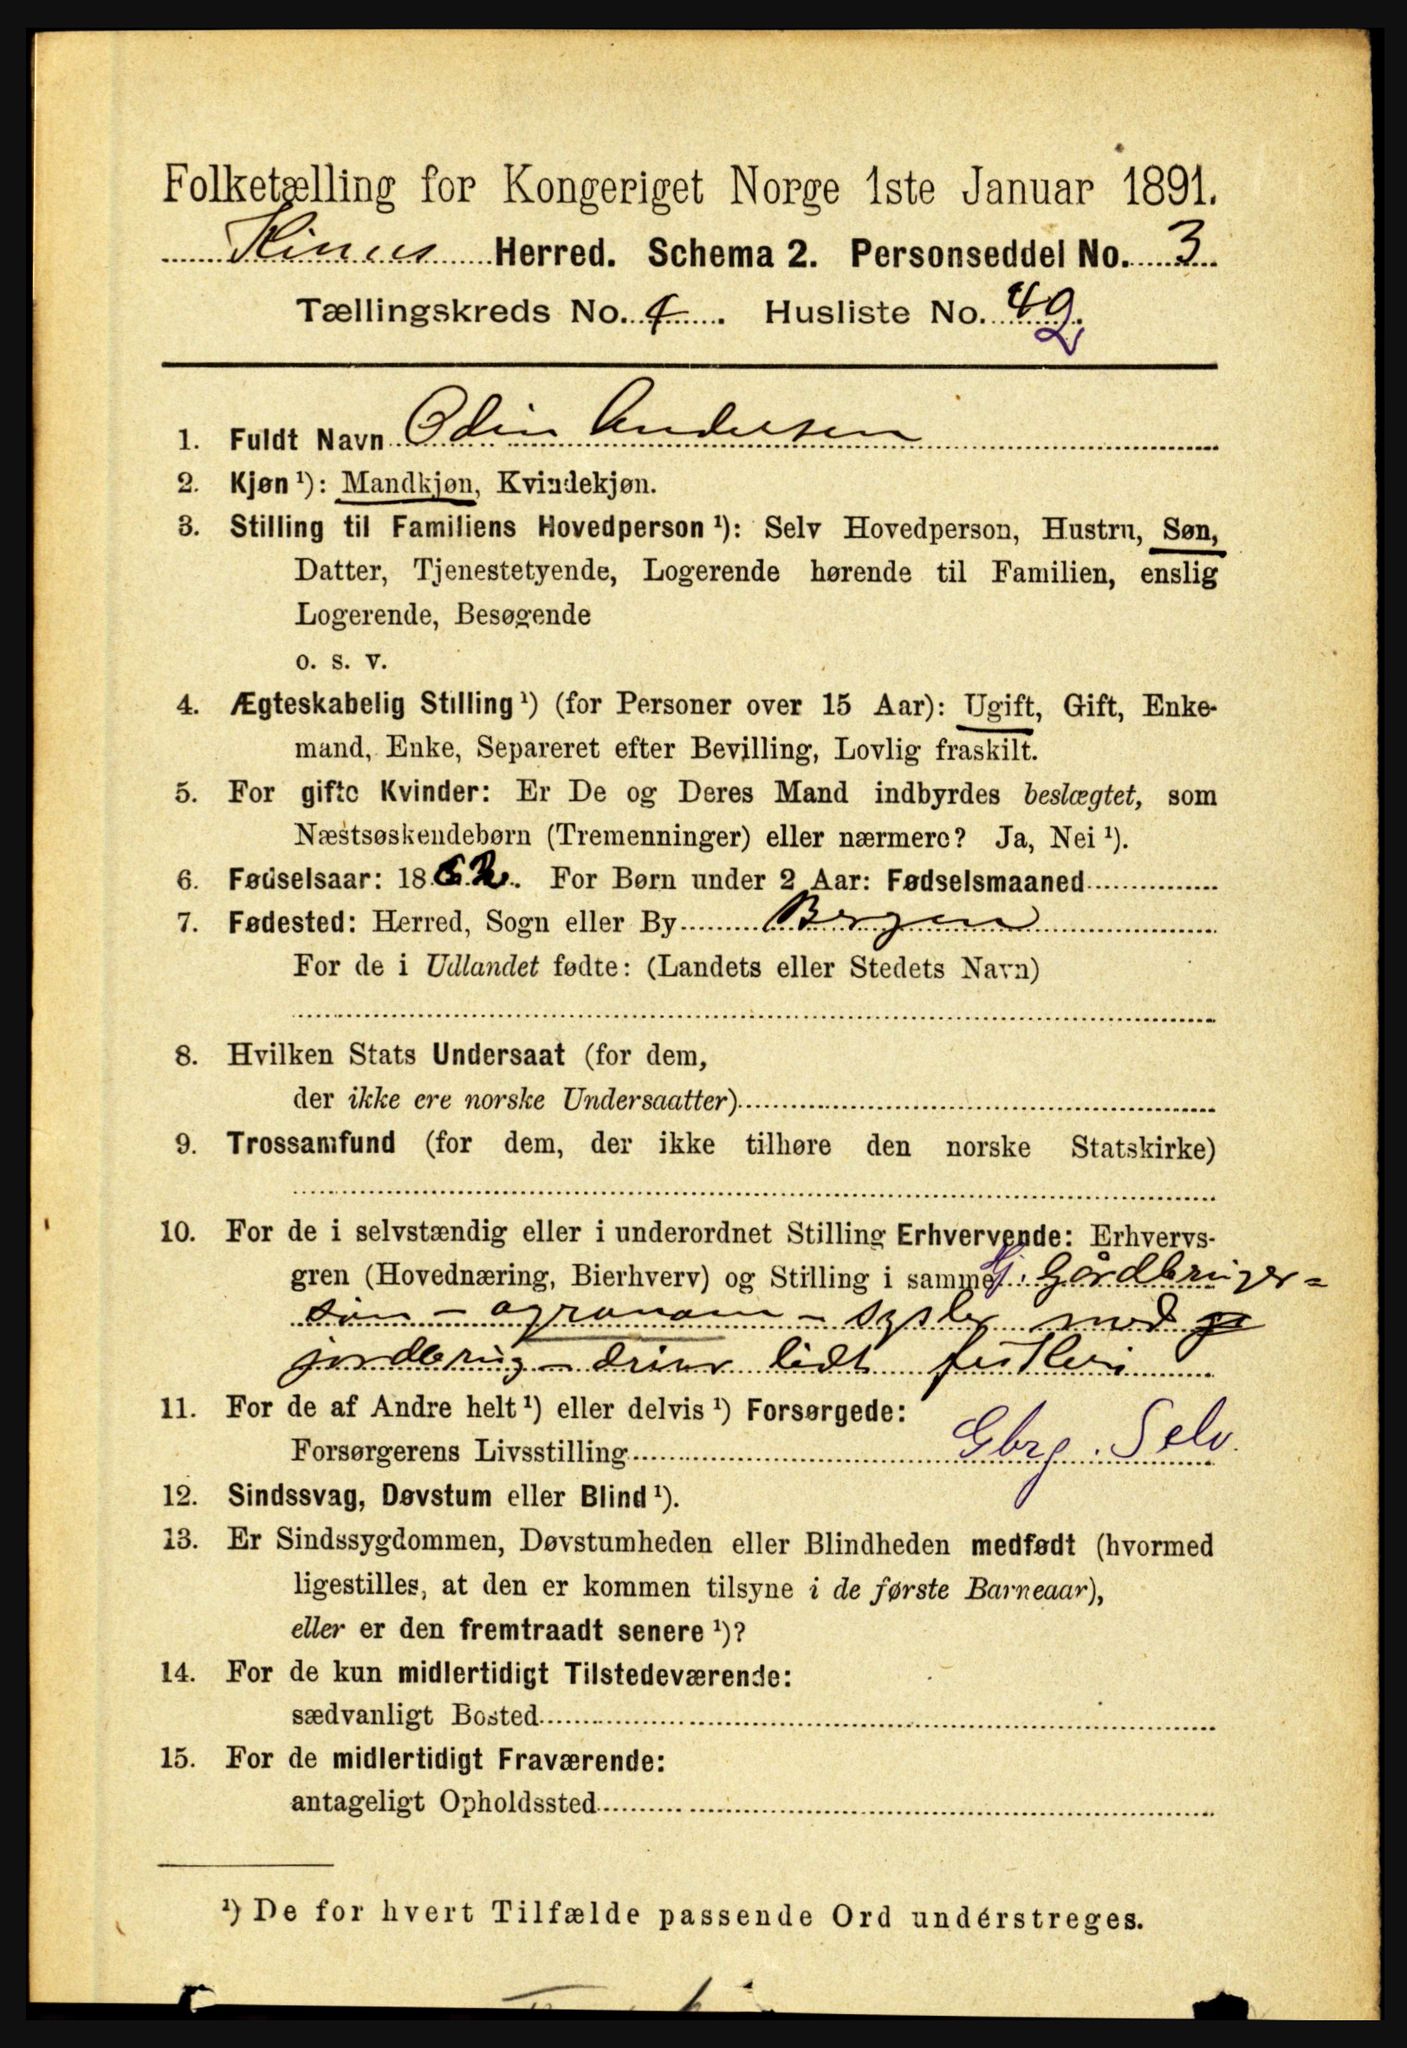 Folketælling for Kongeriget Norge 1ste Januar 1891.
Kinns Herred. Schema 2. Personseddel No. 3
Tællingskreds No. 4. Husliste No. 49.
1. Fuldt Navn Odin Andersen
2. Kjøn ¹): Mandkjøn, Kvindekjøn.
3. Stilling til Familiens Hovedperson ¹): Selv Hovedperson, Hustru, Søn,
Datter, Tjenestetyende, Logerende hørende til Familien, enslig
Logerende, Besøgende
o. s. v.
4. Ægteskabelig Stilling ¹) (for Personer over 15 Aar): Ugift, Gift, Enke-
mand, Enke, Separeret efter Bevilling, Lovlig fraskilt.
5. For gifte Kvinder: Er De og Deres Mand indbyrdes beslægtet, som
Næstsøskendebørn (Tremenninger) eller nærmere? Ja, Nei ¹).
6. Fødselsaar: 1862. For Børn under 2 Aar: Fødselsmaaned
7. Fødested: Herred, Sogn eller By Bergen
For de i Udlandet fødte: (Landets eller Stedets Navn)
8. Hvilken Stats Undersaat (for dem,
der ikke ere norske Undersaatter)
9. Trossamfund (for dem, der ikke tilhøre den norske Statskirke)
10. For de i selvstændig eller i underordnet Stilling Erhvervende: Erhvervs-
gren (Hovednæring, Bierhverv) og Stilling i samme Gårdbruger=
søn - agronom - sysler med
jordbrug - driver lidt fiskeri
11. For de af Andre helt ¹) eller delvis ¹) Forsørgede:
Forsørgerens Livsstilling Gbrg. Selv.
12. Sindssvag, Døvstum eller Blind ¹).
13. Er Sindssygdommen, Døvstumheden eller Blindheden medfødt (hvormed
ligestilles, at den er kommen tilsyne i de første Barneaar),
eller er den fremtraadt senere ¹)?
14. For de kun midlertidigt Tilstedeværende:
sædvanligt Bosted
15. For de midlertidigt Fraværende:
antageligt Opholdssted
¹) De for hvert Tilfælde passende Ord understreges.